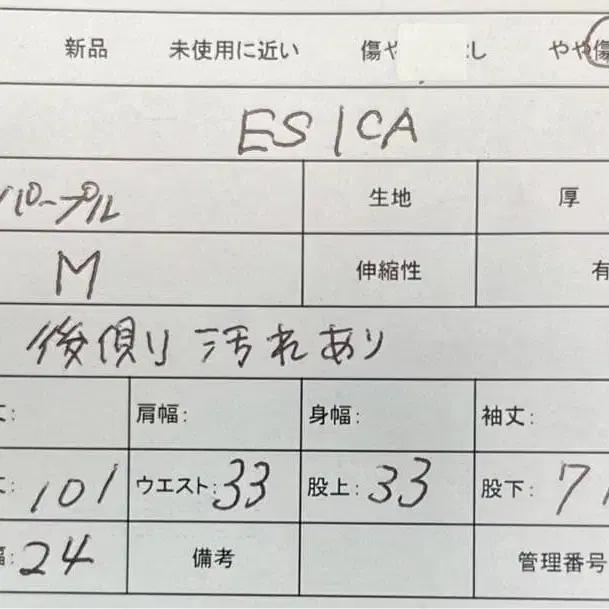 新品 未使用に近い 傷や し やや傷
ESICA
パープル 生地 厚
M 伸縮性 有
後側り 汚れあり
丈: 肩幅: 身幅: 袖丈:
丈: 101 ウエスト: 33 股上: 33 股下: 71
幅: 24 備考 管理番号